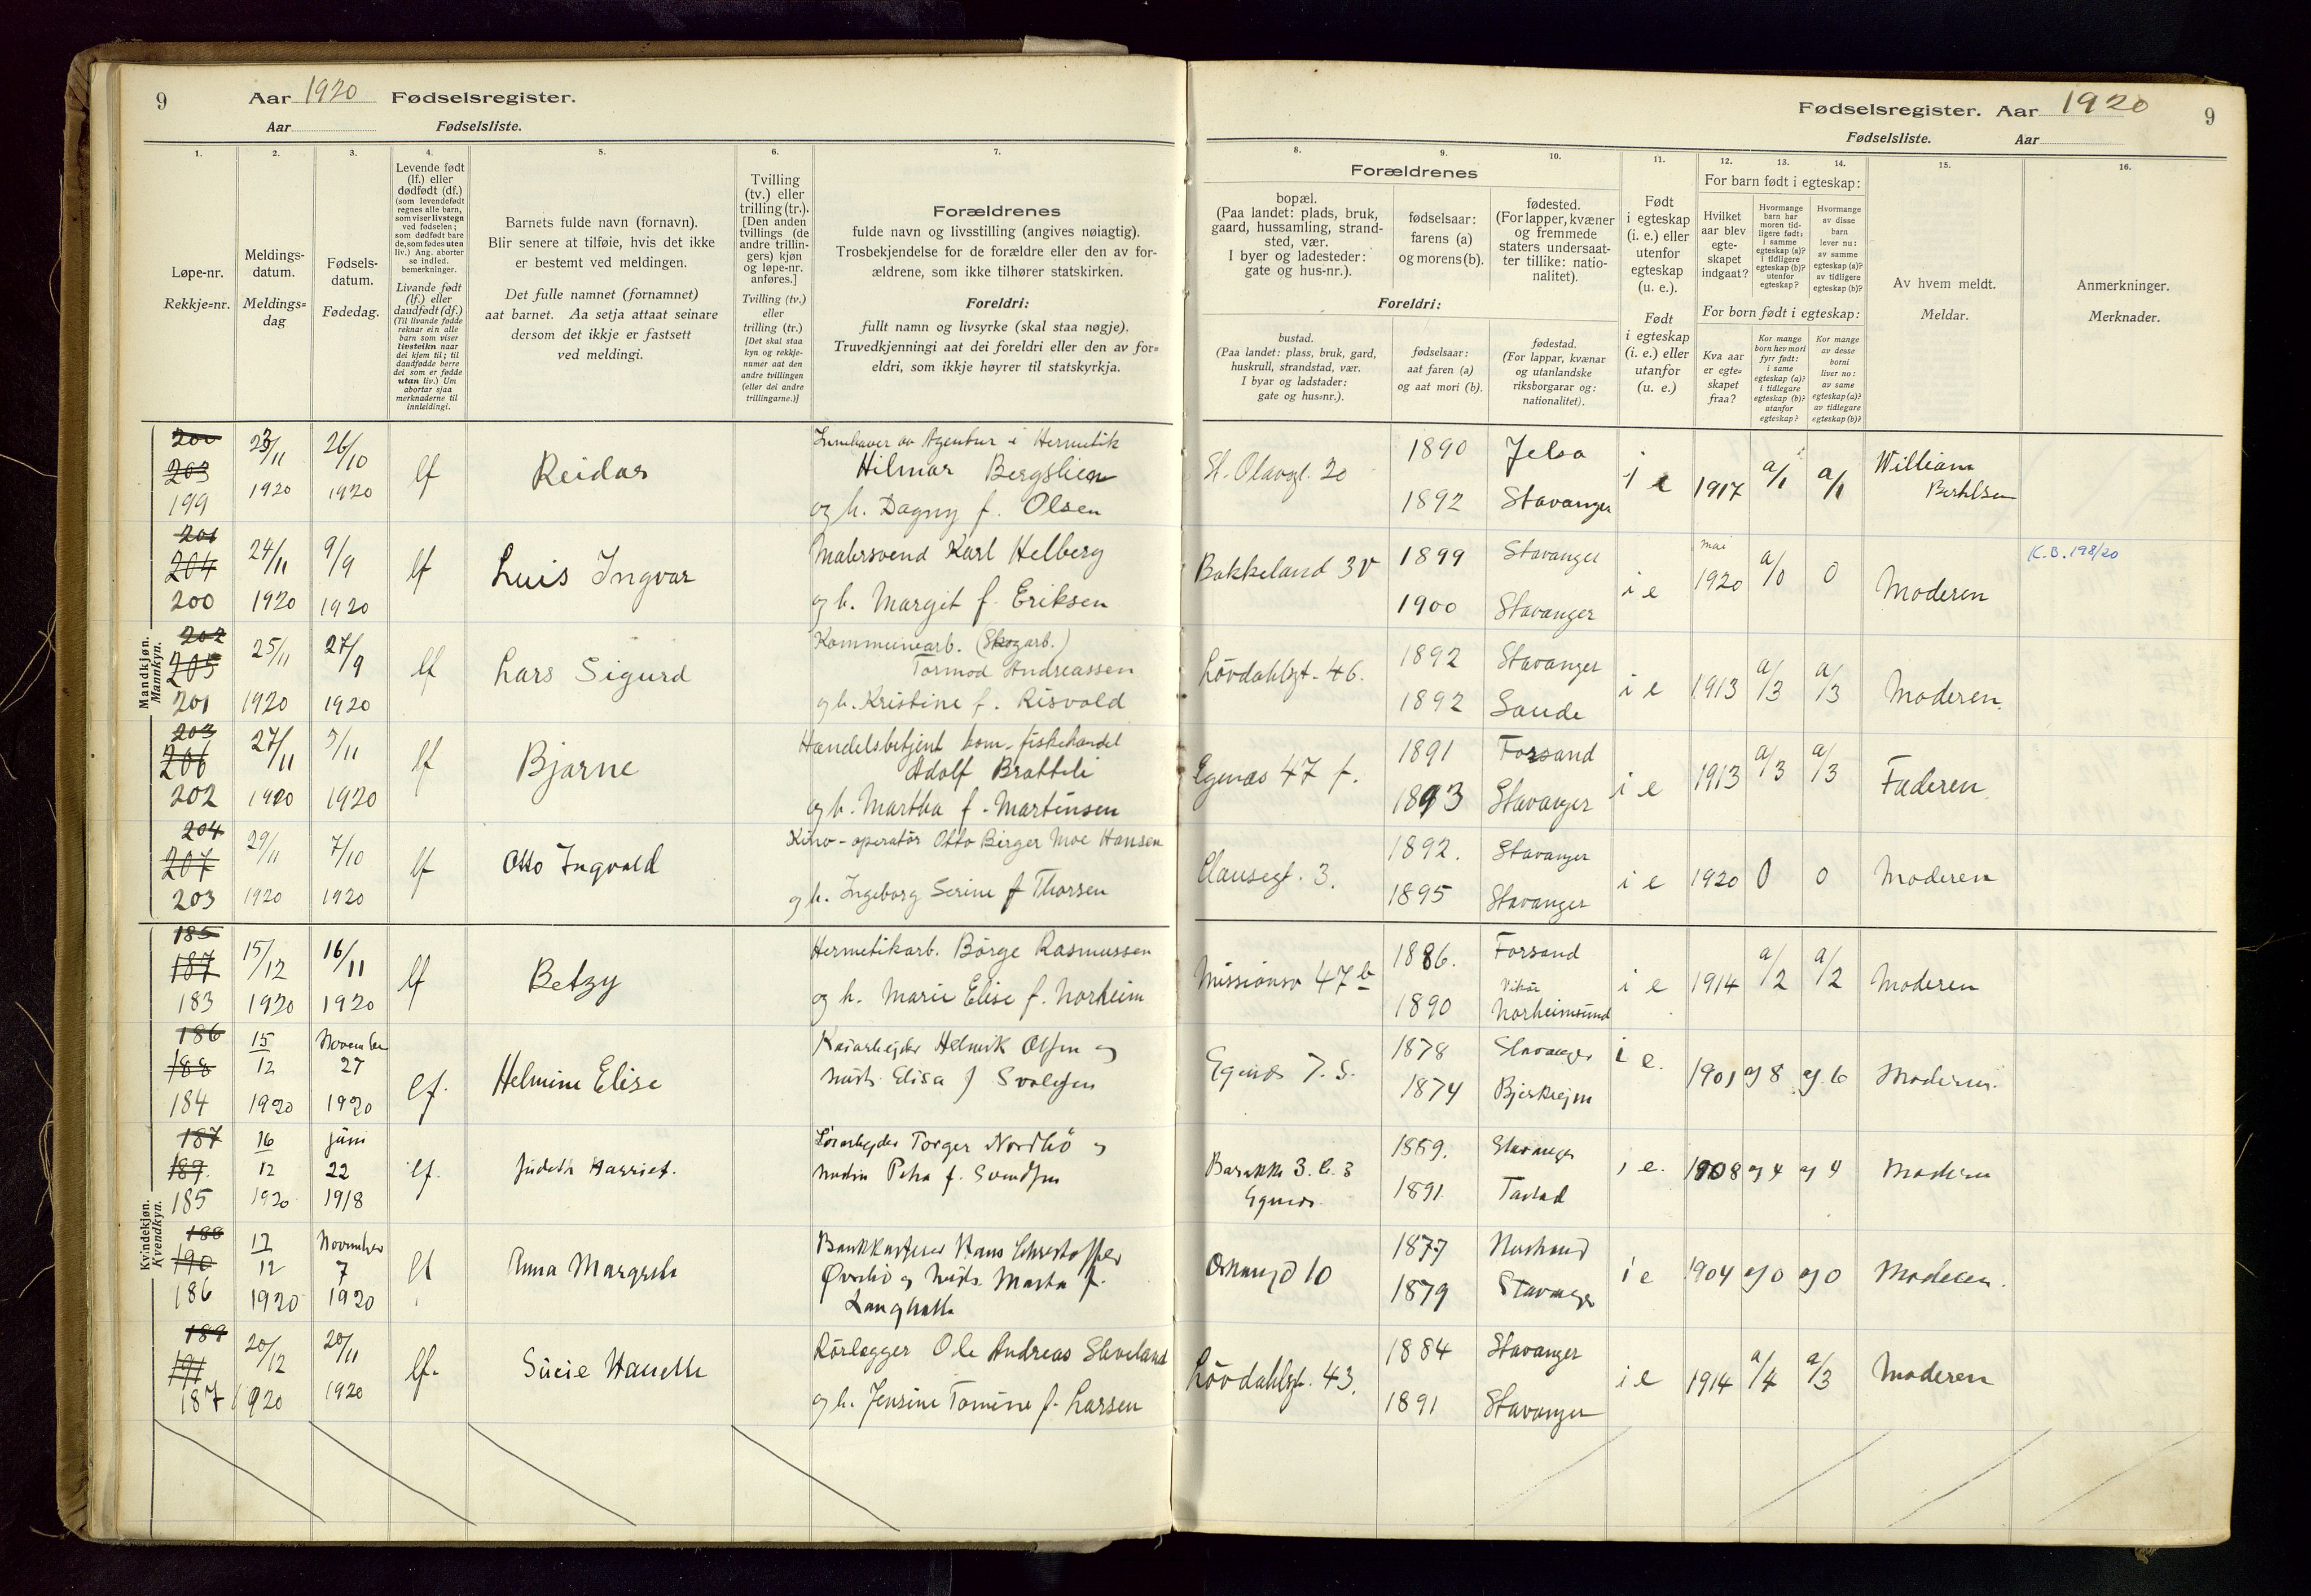 9 Aar 1920 Fødselsregister.
Aar Fødselsliste.
1. 2. 3. 4. 5. 6. 7.
Løpe-nr.
Rekkje=nr.
Meldings-
datum.
Meldings=
dag
Fødsels-
datum.
Fødedag.
Levende født
(lf.) eller
dødfødt (df.)
(som levendefødt
regnes alle barn,
som viser livstegn
ved fødselen;
som dødfødt bare
de, som fødes uten
liv.) Ang. aborter
se indled.
bemerkninger.
Livande født
(lf.) eller
daudfødt (df.)
(Til livande fødde
reknar ein alle
barn som viser
livsteikn naar
dei kjem til; til
daudfødde berre
dei som er fødde
utan liv.) Um
abortar sjaa
merknaderne til
innleidingi.
Barnets fulde navn (fornavn).
Blir senere at tilføie, hvis det ikke
er bestemt ved meldingen.
Det fulle namnet (fornamnet)
aat barnet. Aa setja attaat seinare
dersom det ikkje er fastsett
ved meldingi.
Tvilling
(tv.) eller
trilling (tr.).
[Den anden
tvillings (de
andre trillin-
gers) kjøn
og løpe-nr.
anføres.]
Tvilling (tv.)
eller
trilling (tr.)
[Det skal staa
kyn og rekkje-
numer aat den
andre tvillingen
(eller dei andre
trillingarne.)]
Forældrenes
fulde navn og livsstilling (angives nøiagtig).
Trosbekjendelse for de forældre eller den av for-
ældrene, som ikke tilhører statskirken.
Foreldri:
fullt namn og livsyrke (skal staa nøgje).
Truvedkjenningi aat dei foreldri eller den av for=
eldri, som ikkje høyrer til statskyrkja.
Mandkjøn.
Mannkyn.
203 23/11 26/10 Innehaver av Agentur i Hermetik
199 1920 1920 lf Reidar Hilmar Bergslien
og h. Dagny f. Olsen
201
204 24/11 9/9 lf Luis Ingvar Malersvend Karl Helberg
200 1920 1920 og h. Margit f. Eriksen
202 Kommunearb. (Skogarb.)
205 25/11 27/9 lf Lars Sigurd Tormod Andreassen
201 1920 1920 og h. Kristine f. Risvold
203 Handelsbetjent kom. fiskehandel
206 27/11 3/11 lf Bjarne Adolf Bratteli
202 1920 1920 og h. Martha f. Martinsen
204 Kino-operatør Otto Birger Moe Hansen
207 29/11 7/10 lf Otto Ingvald
203 1920 1920 og h. Ingeborg Serine f Thorsen
Kvindekjøn.
Kvendkyn.
185
187 15/12 16/11 lf Betzy Hermetikarb. Børge Rasmussen
183 1920 1920 og h. Marie Elise f. Norheim
186 15 November
188 12 27 lf. Helmine Elise Helmik Olsen og
184 1920 1920 hust. Elisa f
187 16 juni Torger Nordbö og
189 12 22 lf. Judith Harriet. hustru Petra f. Svendsen
185 1920 1918
188 17 November Bankkasserer Hans Christoffer
190 12 7 lf Anna Margrete og hust. Marta f.
186 1920 1920
189
191 20/12 20/11 lf. Rörlegger Ole Andreas Slaveland
187 1920 1920 og h. Jensine Tomine f. Larsen
Fødselsregister. Aar 1920 9
Fødselsliste. Aar
8. 9. 10. 11. 12. 13. 14. 15. 16.
Forældrenes
bopæl.
(Paa landet: plads, bruk,
gaard, hussamling, strand-
sted, vær.
I byer og ladesteder:
gate og hus-nr.).
fødselsaar:
farens (a)
og morens (b).
fødested.
(For lapper, kvæner
og fremmede
staters undersaat-
ter tillike: natio-
nalitet).
Foreldri:
bustad.
(Paa landet: plass, bruk, gard,
huskrull, strandstad, vær.
I byar og ladstader:
gate og hus=nr.).
fødselsaar:
aat faren (a)
og aat mori (b).
fødestad.
(For lappar, kvænar
og utanlandske
riksborgarar og:
nationalitet).
Født
i egteskap
(i. e.) eller
utenfor
egteskap
(u. e.).
Født
i egteskap
(i. e.) eller
utanfor
(u. e.)
For barn født i egteskap:
Hvilket
aar blev
egte-
skapet
indgaat?
Hvormange
barn har
moren tid-
ligere født:
i samme
egteskap (a)?
i tidligere
egteskap (b)?
utenfor
egteskap?
Hvormange
av disse
barn
lever nu:
av samme
egteskap (a)?
av tidligere
egteskap (b)?
For born født i egteskap:
Kva aar
er egte=
skapet
fraa?
Kor mange
born hev mori
fyrr født:
i same
egteskap (a)?
i tidlegare
egteskap (b)?
utanfor
egteskap?
Kor mange
av desse
borni
liver no:
av same
egteskap (a)?
av tidlegare
egteskap (b)?
Av hvem meldt.
Meldar.
Anmerkninger.
Merknader.
St. Olavsgt. 20 1890 Jelsa i e 1917 a/1 a/1 William
1892 Stavanger Berthlsen
Bakkeland 3v 1899 Stavanger i e mai 1920 a/0 0 Moderen K.B. 198/20
1900 Stavanger
Lövdahlsgt. 46. 1892 Stavanger i e 1913 a/3 a/3 Moderen
1892 Saude
Egenæs 47 f. 1891 Forsand i e 1913 a/3 a/3 Faderen
1893 Stavanger
Clausegt. 3. 1892. Stavanger i e 1920 0 0 Moderen
1895 Stavanger
Missionsv 47 b 1886. Forsand i e 1914 a/2 a/2 Moderen
1890 Vikör Norheimsund
Egenæs 7. S. 1878 Stavanger i e. 1901 a/ 8 a/. 6 Moderen.
1874 Bjerkrejm
Barakke 3. l. 3 1889. Stavanger i e. 1908 a/ 4 a/ 4 Moderen
Egenæs. 1891. Tastad
10 1877 Stavanger i e 1904 a/ 0 a/ 0 Moderen.
1879
Lövdahlsgt. 43. 1884 Stavanger i e 1914 a/4 a/3 Moderen
1891 Stavanger